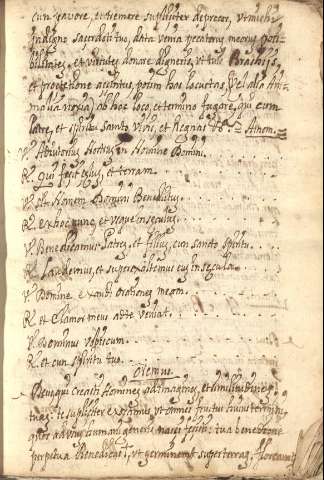 cun pavore, et tremere supliciter deprecor, ut michi
Indigno Sacerdoti tuo, data venia pecatorus meorus poti-
bilitates, et virtutes donare digneris, ut tuis Brachijs,
et protectione accintus, potim has locustas, (Vel alia Ani-
malia noxia) ab hoc loco, et termino fugare, qui cum
Patre, et Spiritu Santo Vivis, et Regnas &a. Amen.
V. Adiutorius Nostrus in Nomine Domini.
R. Qui fecit celus, et terram.
V. Sit Nomen Domini Benedictus.
R. ex hoc nunc, et usque in seculus.
V. Benedicamus Patres, et Filius, cun Sancto Spiritu.
R. Laudemus, et superexaltemus eus in secula.
V. Domine exaudi orationes meam.
R. et Clamor meus ad te veniat.
V. Dominus vobiscum.
R. et cun Spiritu tuo.
Oremus
Deus qui Creasti Homines ad Imagines, et similitudines
tuas: te supliciter exoramus, ut omnes fructus huius termini,
quos ad usus humani generis nasci fecisti: tua benedictione
perpetua Benedicere, ut germinent super terras,